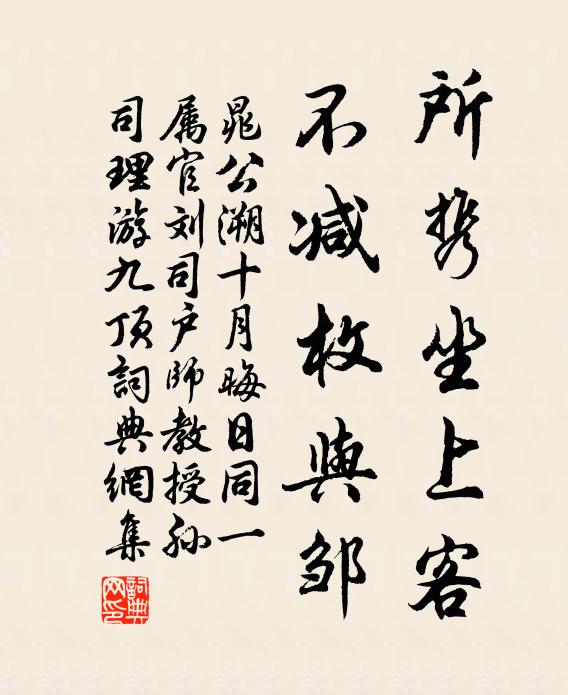 所携坐上客
不减枚與邹
晁公溯十月晦日同一
属官刘司户师教授孙
司理游九顶詞典網集
詞典网印